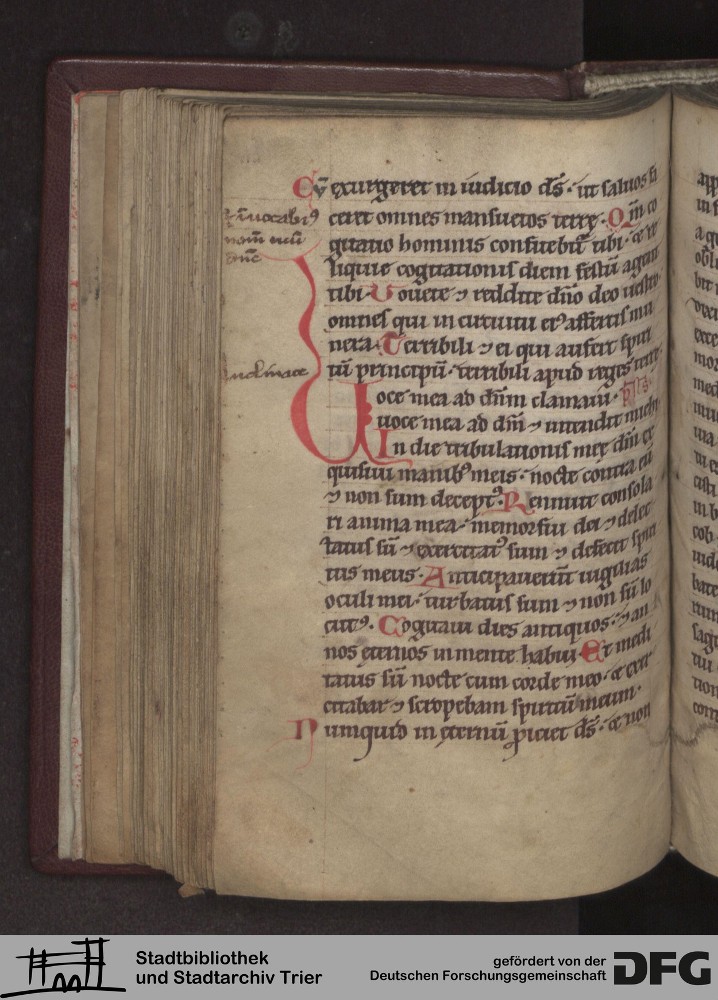 Cū exurgeret in iudicio ds̄· ut saluos fa
ceret omnes mansuetos terrę· Qm̄ co
gitatio hominis confitebit᷑ tibi· et re
liquie cogitationis diem festū agent
tibi· Vouete ⁊ reddite dn̄o deo uestro
omnes qui in circuitu eiꝰ affertis mu
nera· Terribili ⁊ ei qui aufert spiri
tū principū· terribili apud reges terre·
Uoce mea ad dn̄m clamaui· ps̄·
uoce mea ad dm̄ ⁊ intendit michi
In die tribulationis meę dm̄ ex
quisiui manibꝰ meis· nocte contra eū
⁊ non sum deceptꝰ· Rennuit consola
ri anima mea· memor fui dei ⁊ delec
tatus sū ⁊ exercitatꝰ sum ⁊ defecit spiri
tus meus· Anticipauerūt uigilias
oculi mei· turbatus sum ⁊ non sū lo
cutꝰ· Cogitaui dies antiquos· ⁊ an
nos ęternos in mente habui Et medi
tatus sū nocte cum corde meo· et exer
citabar ⁊ scopebam spiritū meum·
Numquid in ęternū ꝓiciet ds̄· et non
Stadtbibliothek
und Stadtarchiv Trier
gefördert von der
Deutschen Forschungsgemeinschaft
DFG